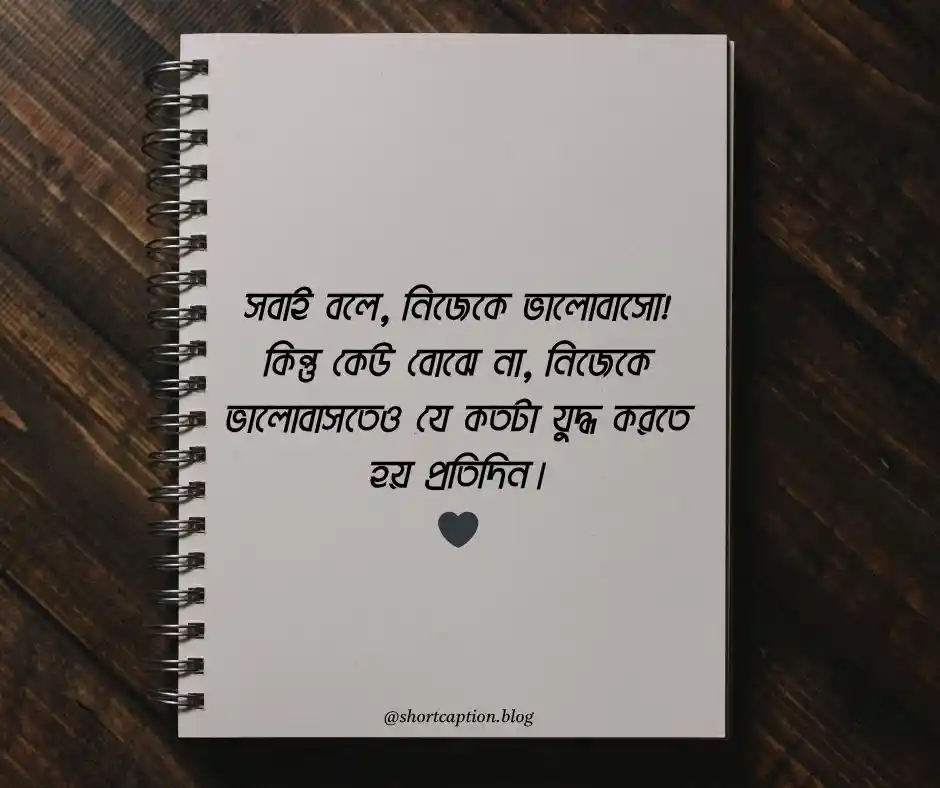 সবাই বলে, নিজেকে ভালোবাসো!
কিন্তু কেউ বোঝে না, নিজেকে
ভালোবাসতেও যে কতটা যুদ্ধ করতে
হয় প্রতিদিন।
@shortcaption.blog